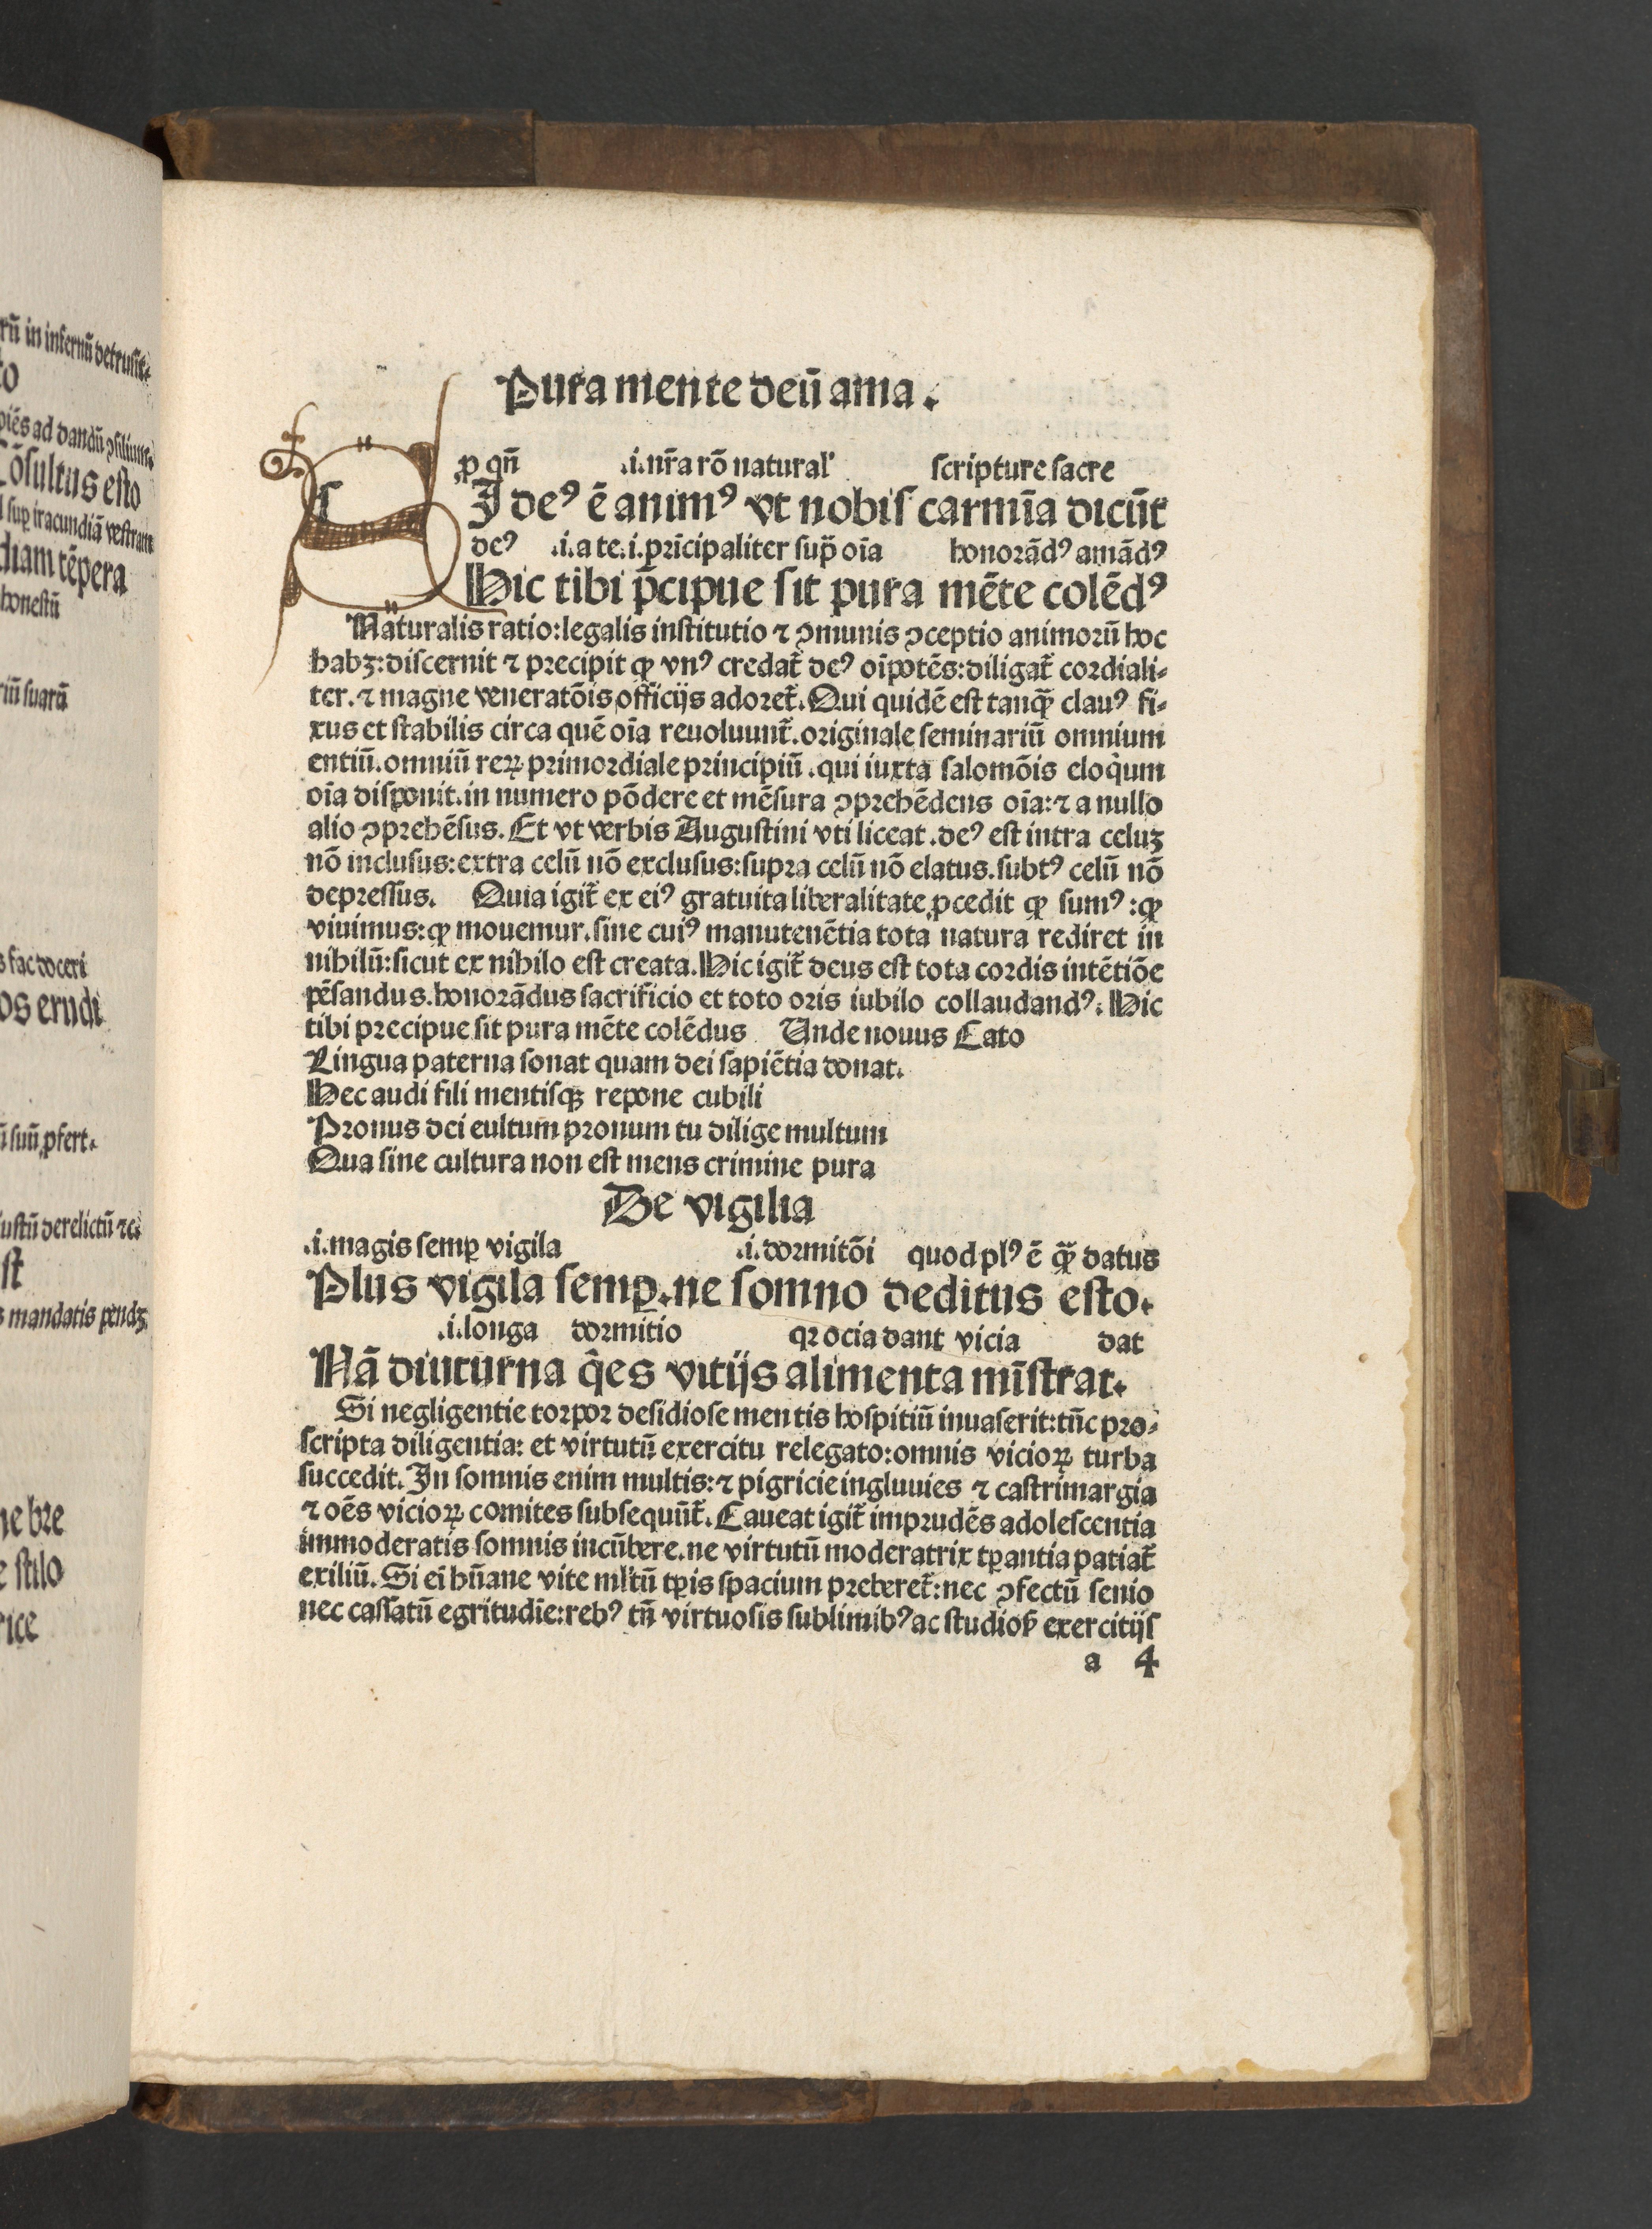 rū in infernū detrusit.
to
piēs ad dandū ꝯsilium.
Cōsultus esto
l suꝑ iracundiā vestram
diam tēpera
honestū
riū suarū
s fac doceri
os erudi
ū suū ꝓfert.
iustū derelictū ⁊c.
st
s mandatis pendꝫ
ne bre
e stilo
rice
Pura mente deū ama.
ꝓ qn̄ .i.nr̄a rō natural' scripture sacre
S
s
I deꝰ ē animꝰ vt nobis carmīa dicūt
deꝰ .i.a te.i.prīcipaliter sup̄ oīa honorādꝰ amādꝰ
Hic tibi p̄cipue sit pura mēte colēdꝰ
Naturalis ratio:legalis institutio ⁊ ꝯmunis ꝯceptio animorū hoc
habꝫ:discernit ⁊ precipit ꝙ vnꝰ credat̄ deꝰ oīpotēs:diligat̄ cordiali⸗
ter.⁊ magne veneratōis officijs adoret̄.Qui quidē est tanꝙ̄ clauꝰ fi⸗
xus et stabilis circa quē oīa reuoluunt̄.originale seminariū omnium
entiū.omniū reꝝ primordiale principiū.qui iuxta salomōis eloq̇um
oīa disponit.in numero pōdere et mēsura ꝯprehēdens oīa:⁊ a nullo
alio ꝯprehēsus. Et vt verbis Augustini vti liceat.deꝰ est intra celuꝫ
nō inclusus:extra celū nō exclusus:supra celū nō elatus.subtꝰ celū nō
depressus. Quia igit̄ ex eiꝰ gratuita liberalitate ꝓcedit ꝙ sumꝰ:ꝙ
viuimus:ꝙ mouemur.sine cuiꝰ manutenētia tota natura rediret in
nihilū:sicut ex nihilo est creata.Hic igit̄ deus est tota cordis intētiōe
pēsandus.honorādus sacrificio et toto oris iubilo collaudandꝰ.Hic
tibi precipue sit pura mēte colēdus Unde nouus Cato
Lingua paterna sonat quam dei sapiētia donat.
Hec audi fili mentisqꝫ repone cubili
Pronus dei cultum pronum tu dilige multum
Qua sine cultura non est mens crimine pura
De vigilia
.i.magis semꝑ vigila .i.dormitōi quod plꝰ ē ꝙ̄ datus
Plus vigila semꝑ.ne somno deditus esto.
.i.longa dormitio qꝛ ocia dant vicia dat
Nā diuturna q̇es vitijs alimenta mīstrat.
Si negligentie torpor desidiose mentis hospitiū inuaserit:tūc pro⸗
scripta diligentia: et virtutū exercitu relegato:omnis vicioꝝ turba
succedit.In somnis enim multis:⁊ pigricie ingluuies ⁊ castrimargia
⁊ oēs vicioꝝ comites subsequūt̄.Caueat igit̄ imprudēs adolescentia
immoderatis somnis incūbere.ne virtutū moderatrix tꝑantia patiat̄
exiliū.Si eī hūane vite ml̄tū tꝑis spacium preberet̄:nec ꝯfectū senio
nec cassatū egritudīe:rebꝰ tn̄ virtuosis sublimibꝰ ac studiop̄ exercitijs
a 4